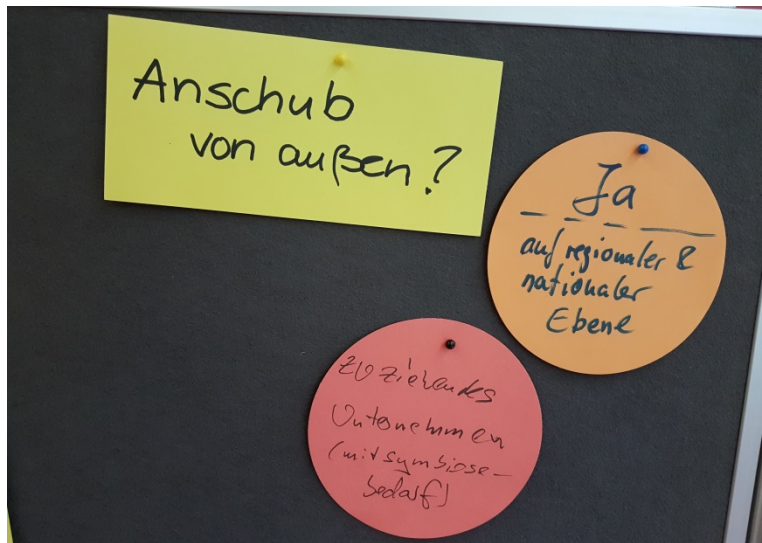 Anschub
von außen?
Ja
auf regionaler &
nationaler
Ebene
zuziehendes
Unternehmen
(mit symbiose-
bedarf)